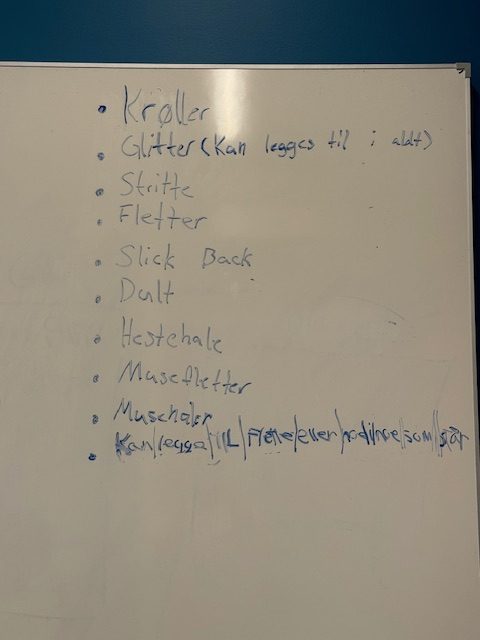 • Krøller
• Glitter (kan legges til i aldt)
• Stritte
• Fletter
• Slick Back
• Dult
• Hestehale
• Musefletter
• Musehaler
• Kan legga TIL Flette eller som står